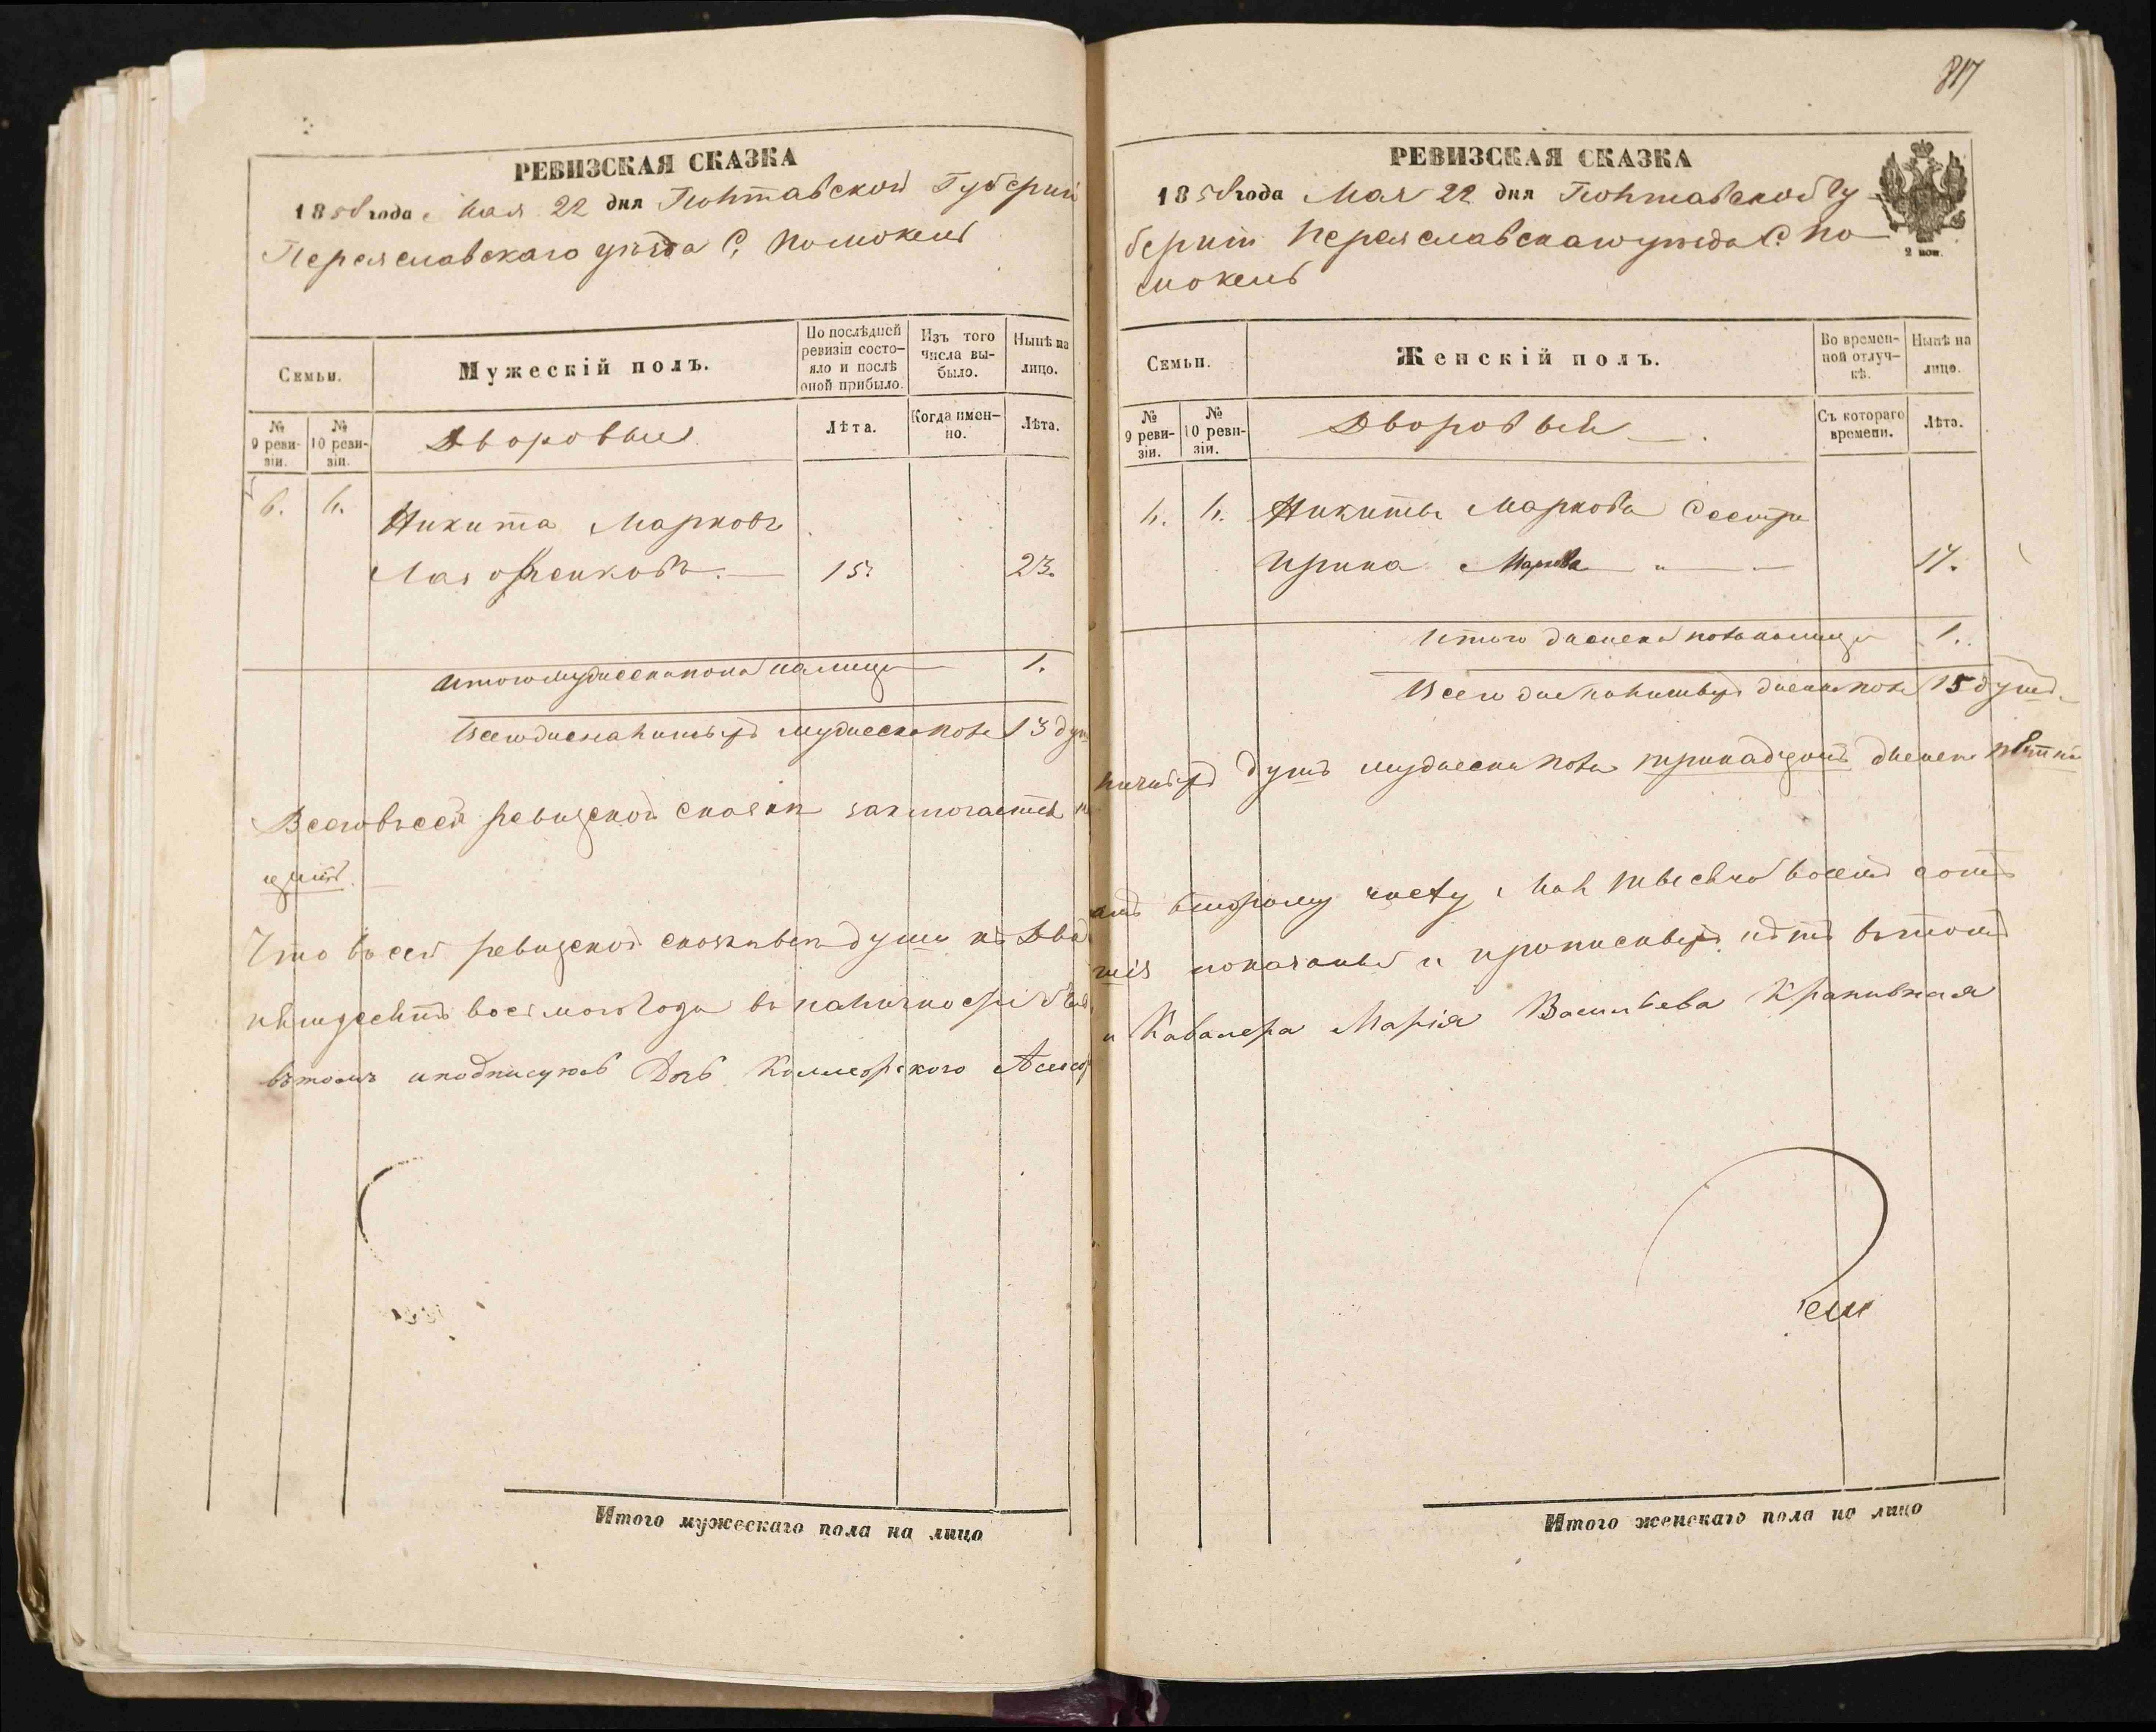 РЕВИЗСКАЯ СКАЗКА
1858 года Мая 22 дня Полтавской Губерніи
Переяславскаго уѣзда С. Помокель
Семьи.
Мужескій полъ.
По послѣдней ревизіи состо-
яло и послѣ оной прибыло.
Изъ того числа вы-
было.
Нынѣ на лицо.
№ 9 реви-
зіи.
№ 10 реви-
зіи.
Дворовые
Лѣта.
Когда имен-
но.
Лѣта.
6. 6. Никита Марковъ
15. 23.
Итого мужеска пола на лицо 1.
Всего мужеска пола 13 душ
Всего въ сей ревизской сказки заключается
Что въ сей ревизской сказки всѣ души по Два
пятдесятъ восьмого года въ наличности
въ томъ и подписуюсь Дочь Коллежского Асесор
Итого мужескаго пола на лицо
817
РЕВИЗСКАЯ СКАЗКА
1858 года Мая 22 дня Полтавской Гу
берніи Переяславскаго уѣзда С. По
мокель
2 коп.
Семьи.
Женскій полъ.
Во времен-
ной отлуч-
кѣ.
Нынѣ на лицо.
№ 9 реви-
зіи.
№ 10 реви-
зіи.
Дворовыи
Съ котораго времени.
Лѣта.
6. 6. Никиты Маркова Сестра
Ирина Маркова 17.
Итого женска пола на лицо 1.
Всего женска пола 15 душ.
душъ мужеска пола тринадцать женска
второму числу Мая тысяча восемь сотъ
показаны и прописныхъ нѣтъ въ томъ
и Кавалера Марія Васильева Крапивная
Итого женскаго пола на лицо